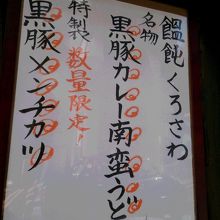 饂飩くろさわ
名物
黒豚カレー南蛮うどん
特製
数量限定!
黒豚メンチカツ